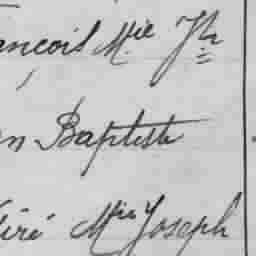 ançois Mie Jh
n Baptiste
iré Mie Joseph